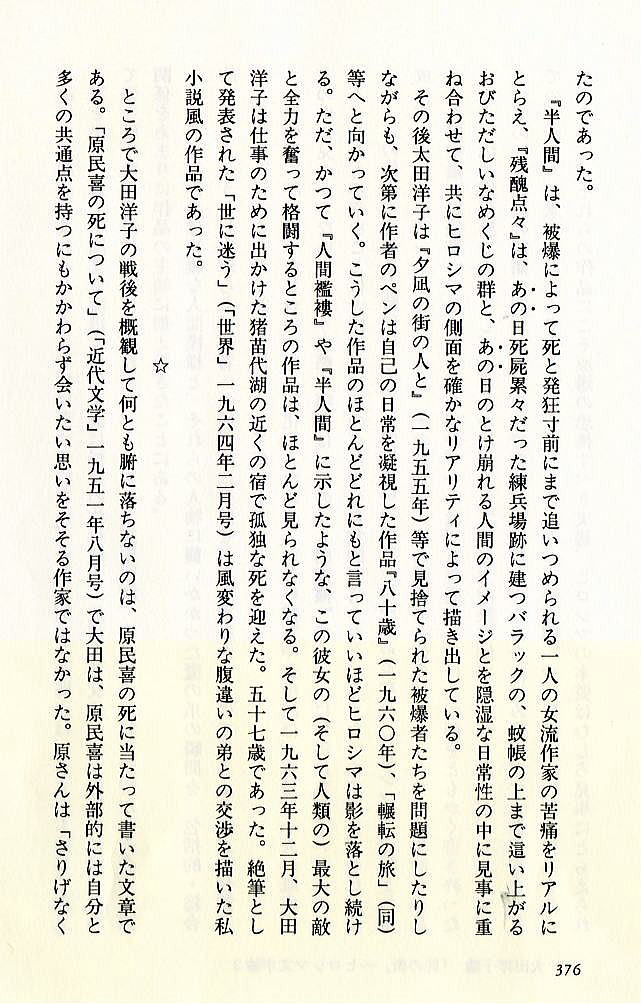 たのであった。
『半人間』は、被爆によって死と発狂寸前にまで追いつめられる一人の女流作家の苦痛をリアルに
とらえ、『残醜点々』は、あの日死屍累々だった練兵場跡に建つバラックの、蚊帳の上まで這い上がる
おびただしいなめくじの群と、あの日のとけ崩れる人間のイメージとを隠湿な日常性の中に見事に重
ね合わせて、共にヒロシマの側面を確かなリアリティによって描き出している。
その後太田洋子は『夕凪の街の人と』（一九五五年）等で見捨てられた被爆者たちを問題にしたりし
ながらも、次第に作者のペンは自己の日常を凝視した作品『八十歳』（一九六〇年）、「輾転の旅」（同）
等へと向かっていく。こうした作品のほとんどどれにもと言っていいほどヒロシマは影を落とし続け
る。ただ、かつて『人間襤褸』や『半人間』に示したような、この彼女の（そして人類の）最大の敵
と全力を奮って格闘するところの作品は、ほとんど見られなくなる。そして一九六三年十二月、大田
洋子は仕事のために出かけた猪苗代湖の近くの宿で孤独な死を迎えた。五十七歳であった。絶筆とし
て発表された「世に迷う」（「世界」一九六四年二月号）は風変わりな腹違いの弟との交渉を描いた私
小説風の作品であった。
☆
ところで大田洋子の戦後を概観して何とも腑に落ちないのは、原民喜の死に当たって書いた文章で
ある。「原民喜の死について」（「近代文学」一九五一年八月号）で大田は、原民喜は外部的には自分と
多くの共通点を持つにもかかわらず会いたい思いをそそる作家ではなかった。原さんは「さりげなく
376